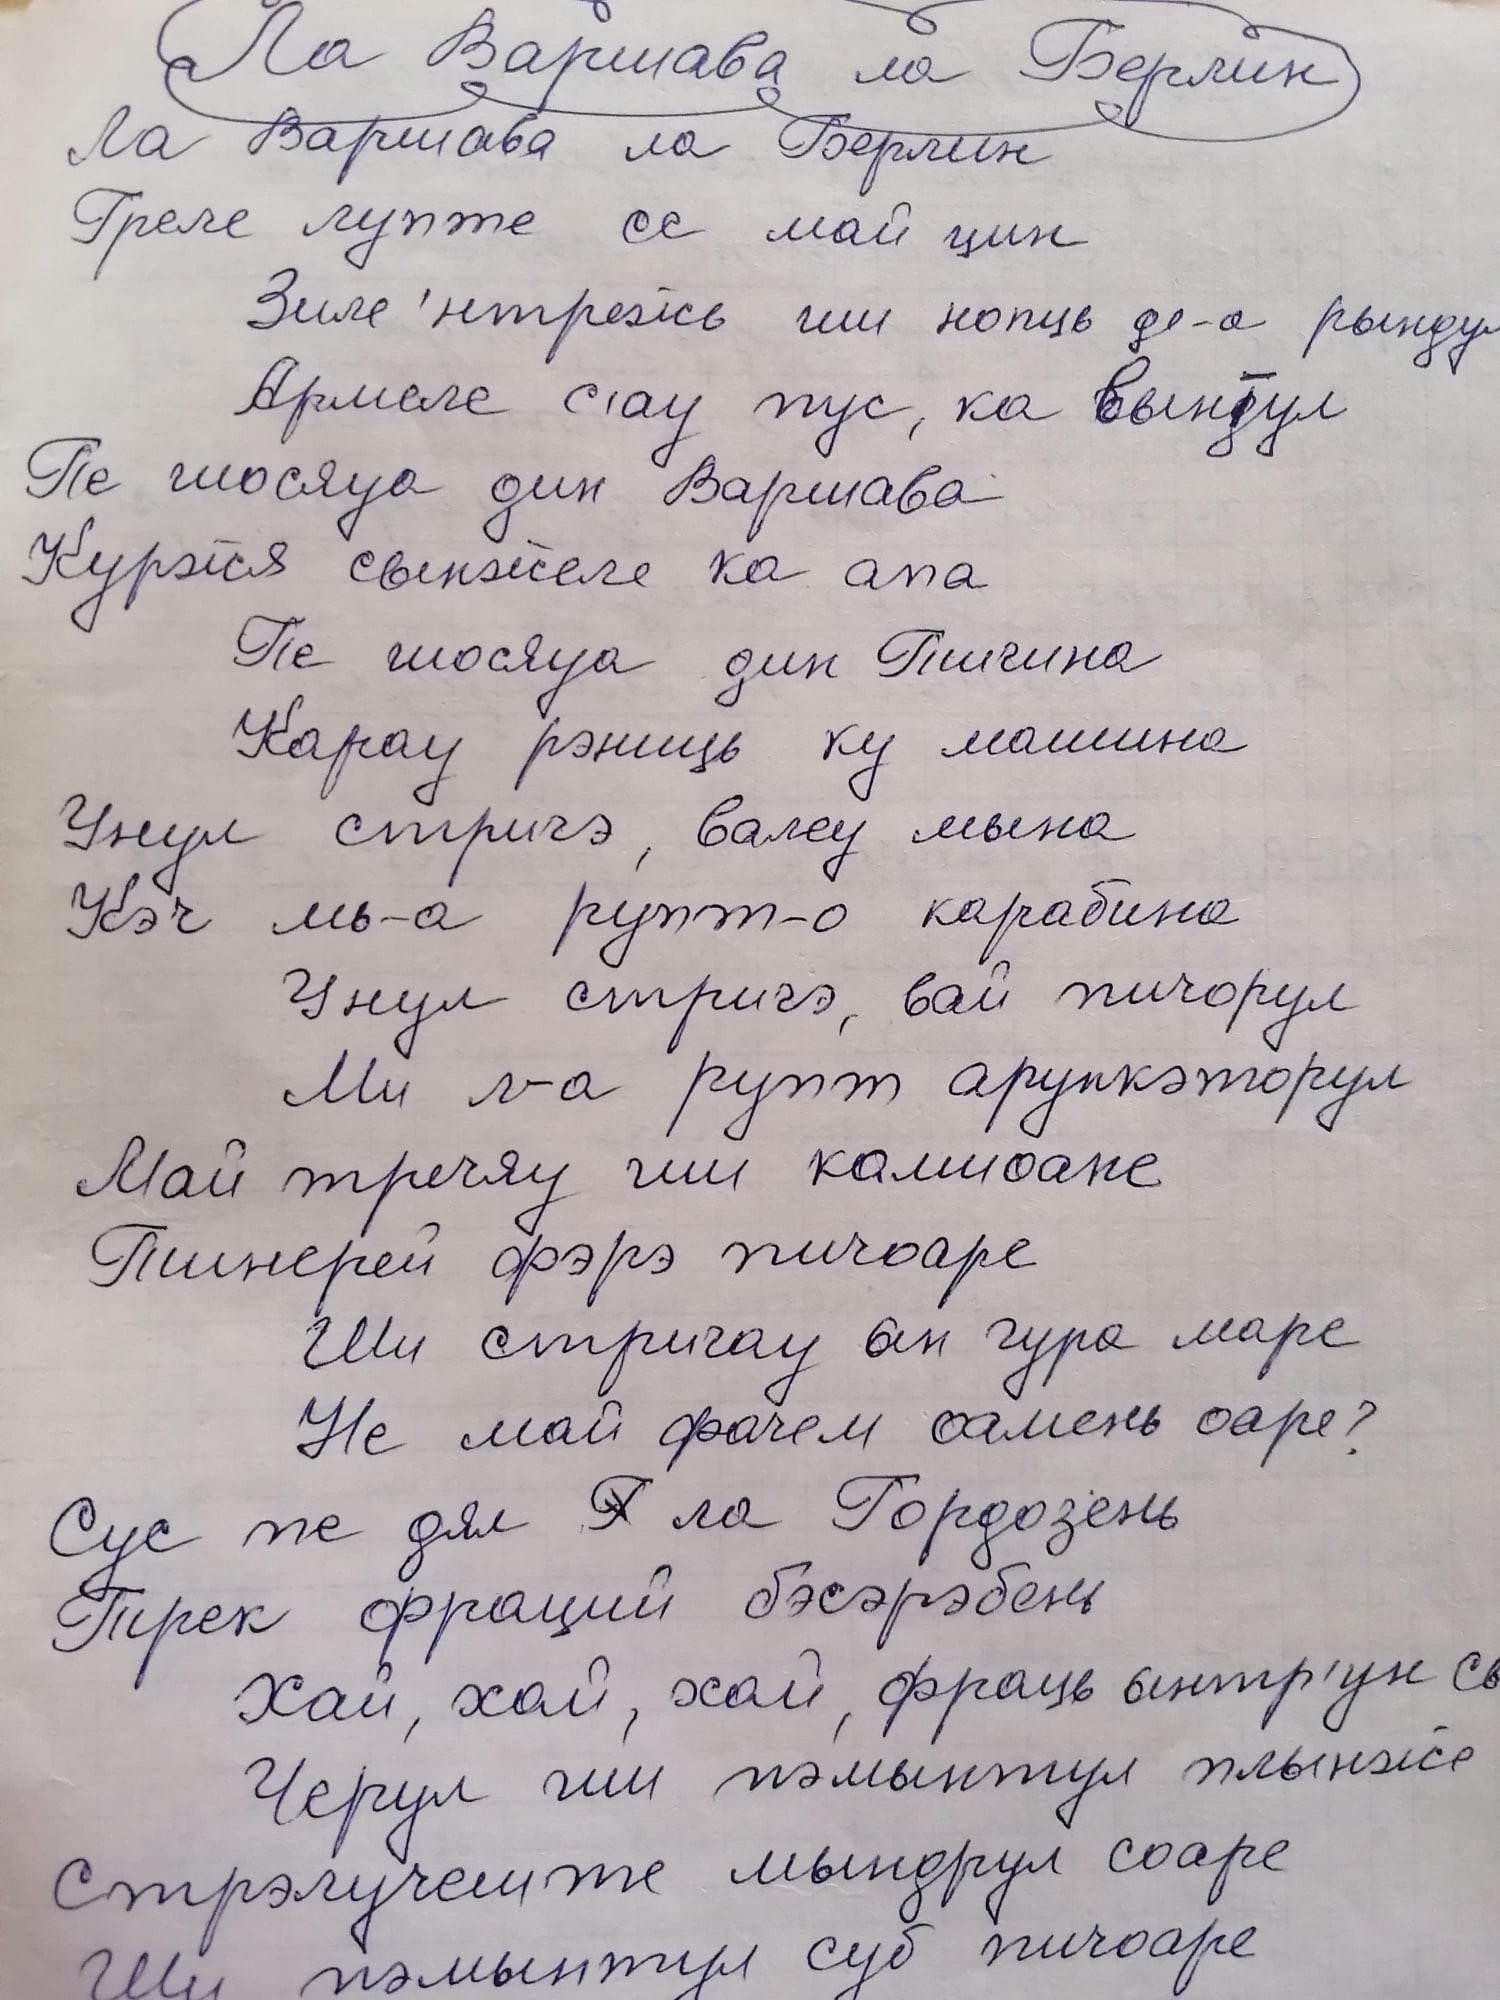 Ла Варшава ла Берлин
Ла Варшава ла Берлин
Греле лупте се май цин
Зиле 'нтрежь ши нопць де-а рындул
Армеле с'ау пус, ка вынтул
Пе шосяуа дин Варшава
Куржя сынжеле ка апа
Пе шосяуа дин Пшичина
Карау рэниць ку машина
Унул стригэ, валеу мына
Кэч мь-а рупт-о карабина
Унул стригэ, вай пичорул
Ми л-а рупт арункэторул
Май тречяу ши камиоане
Тинерей фэрэ пичоаре
Ши стригау ын гура маре
Не май фачем оамень оаре?
Сус пе дял ла Гордозень
Трек фраций бэсэрэбень
Хай, хай, хай, фраць ынтр'ун
Черул ши пэмынтул плынже
Стрэлучеште мындрул соаре
Ши пэмынтул суб пичоаре